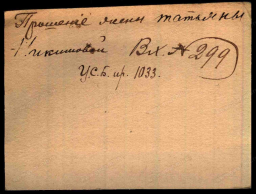 Прошение жены татьяны
Никишовой Вх. № 299
У.С.Б. ир. 1033.